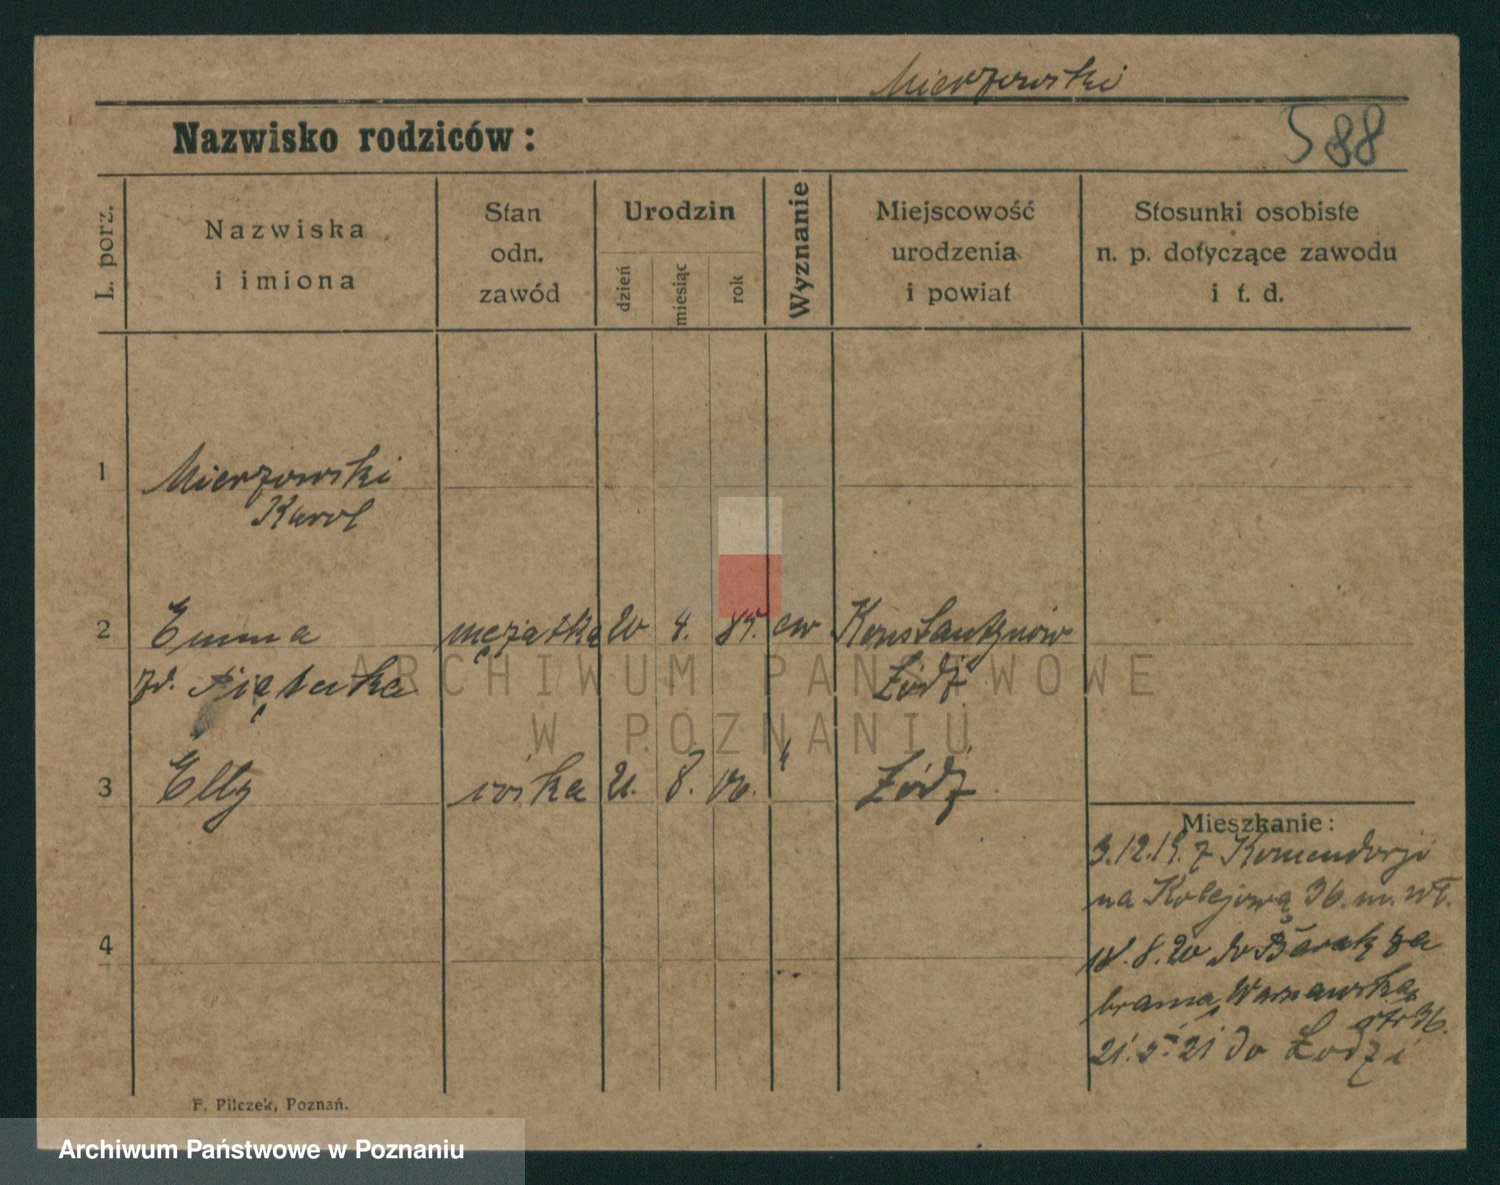 Mierzowski
588
Nazwisko rodziców:
L. porz.
Nazwiska
i imiona
Stan
odn.
zawód
Urodzin
dzień
miesiąc
rok
Wyznanie
Miejscowość
urodzenia
i powiat
Stosunki osobiste
n. p. dotyczące zawodu
i t. d.
1 Mierzowski
Karol
2 Emma mężatka 20 4. 85. ew Konstantynów
zd. Piątecka Łódź
3 Elly córka 21. 8. 10. " Łódź
4
Mieszkanie:
3.12.19. z Komendorji
na Kolejową 36. m. wł.
18.8.20 do Barak za
bramą Warszawską
21.5.21 do Łodzi
F. Pilczek, Poznań.
ARCHIWUM PAŃSTWOWE
W POZNANIU
Archiwum Państwowe w Poznaniu